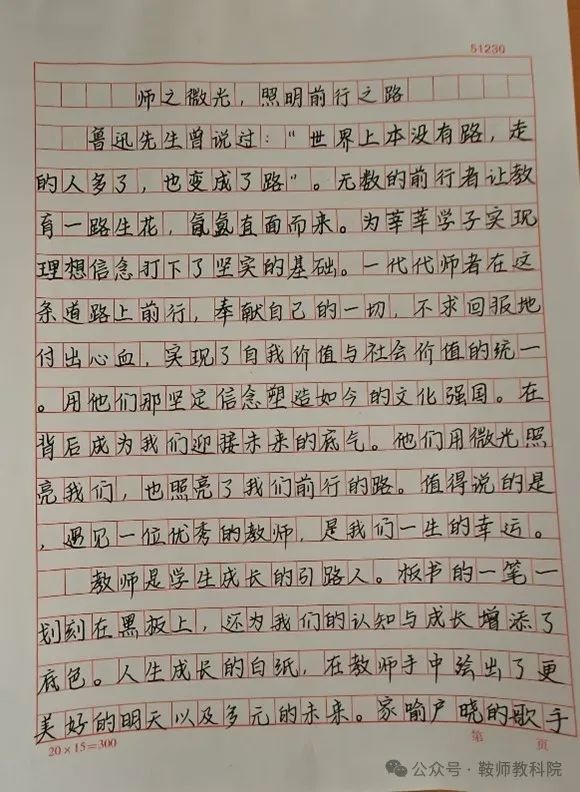 51230
师之微光，照明前行之路
鲁迅先生曾说过："世界上本没有路，走
的人多了，也变成了路"。无数的前行者让教
育一路生花，氤氲直面而来。为莘莘学子实现
理想信念打下了坚实的基础。一代代师者在这
条道路上前行，奉献自己的一切，不求回报地
付出心血，实现了自我价值与社会价值的统一
。用他们那坚定信念塑造如今的文化强国。在
背后成为我们迎接未来的底气。他们用微光照
亮我们，也照亮了我们前行的路。值得说的是
，遇见一位优秀的教师，是我们一生的幸运。
教师是学生成长的引路人。板书的一笔一
划刻在黑板上，还为我们的认知与成长增添了
底色。人生成长的白纸，在教师手中绘出了更
美好的明天以及多元的未来。家喻户晓的歌手
20×15=300
第 页
公众号·鞍师教科院